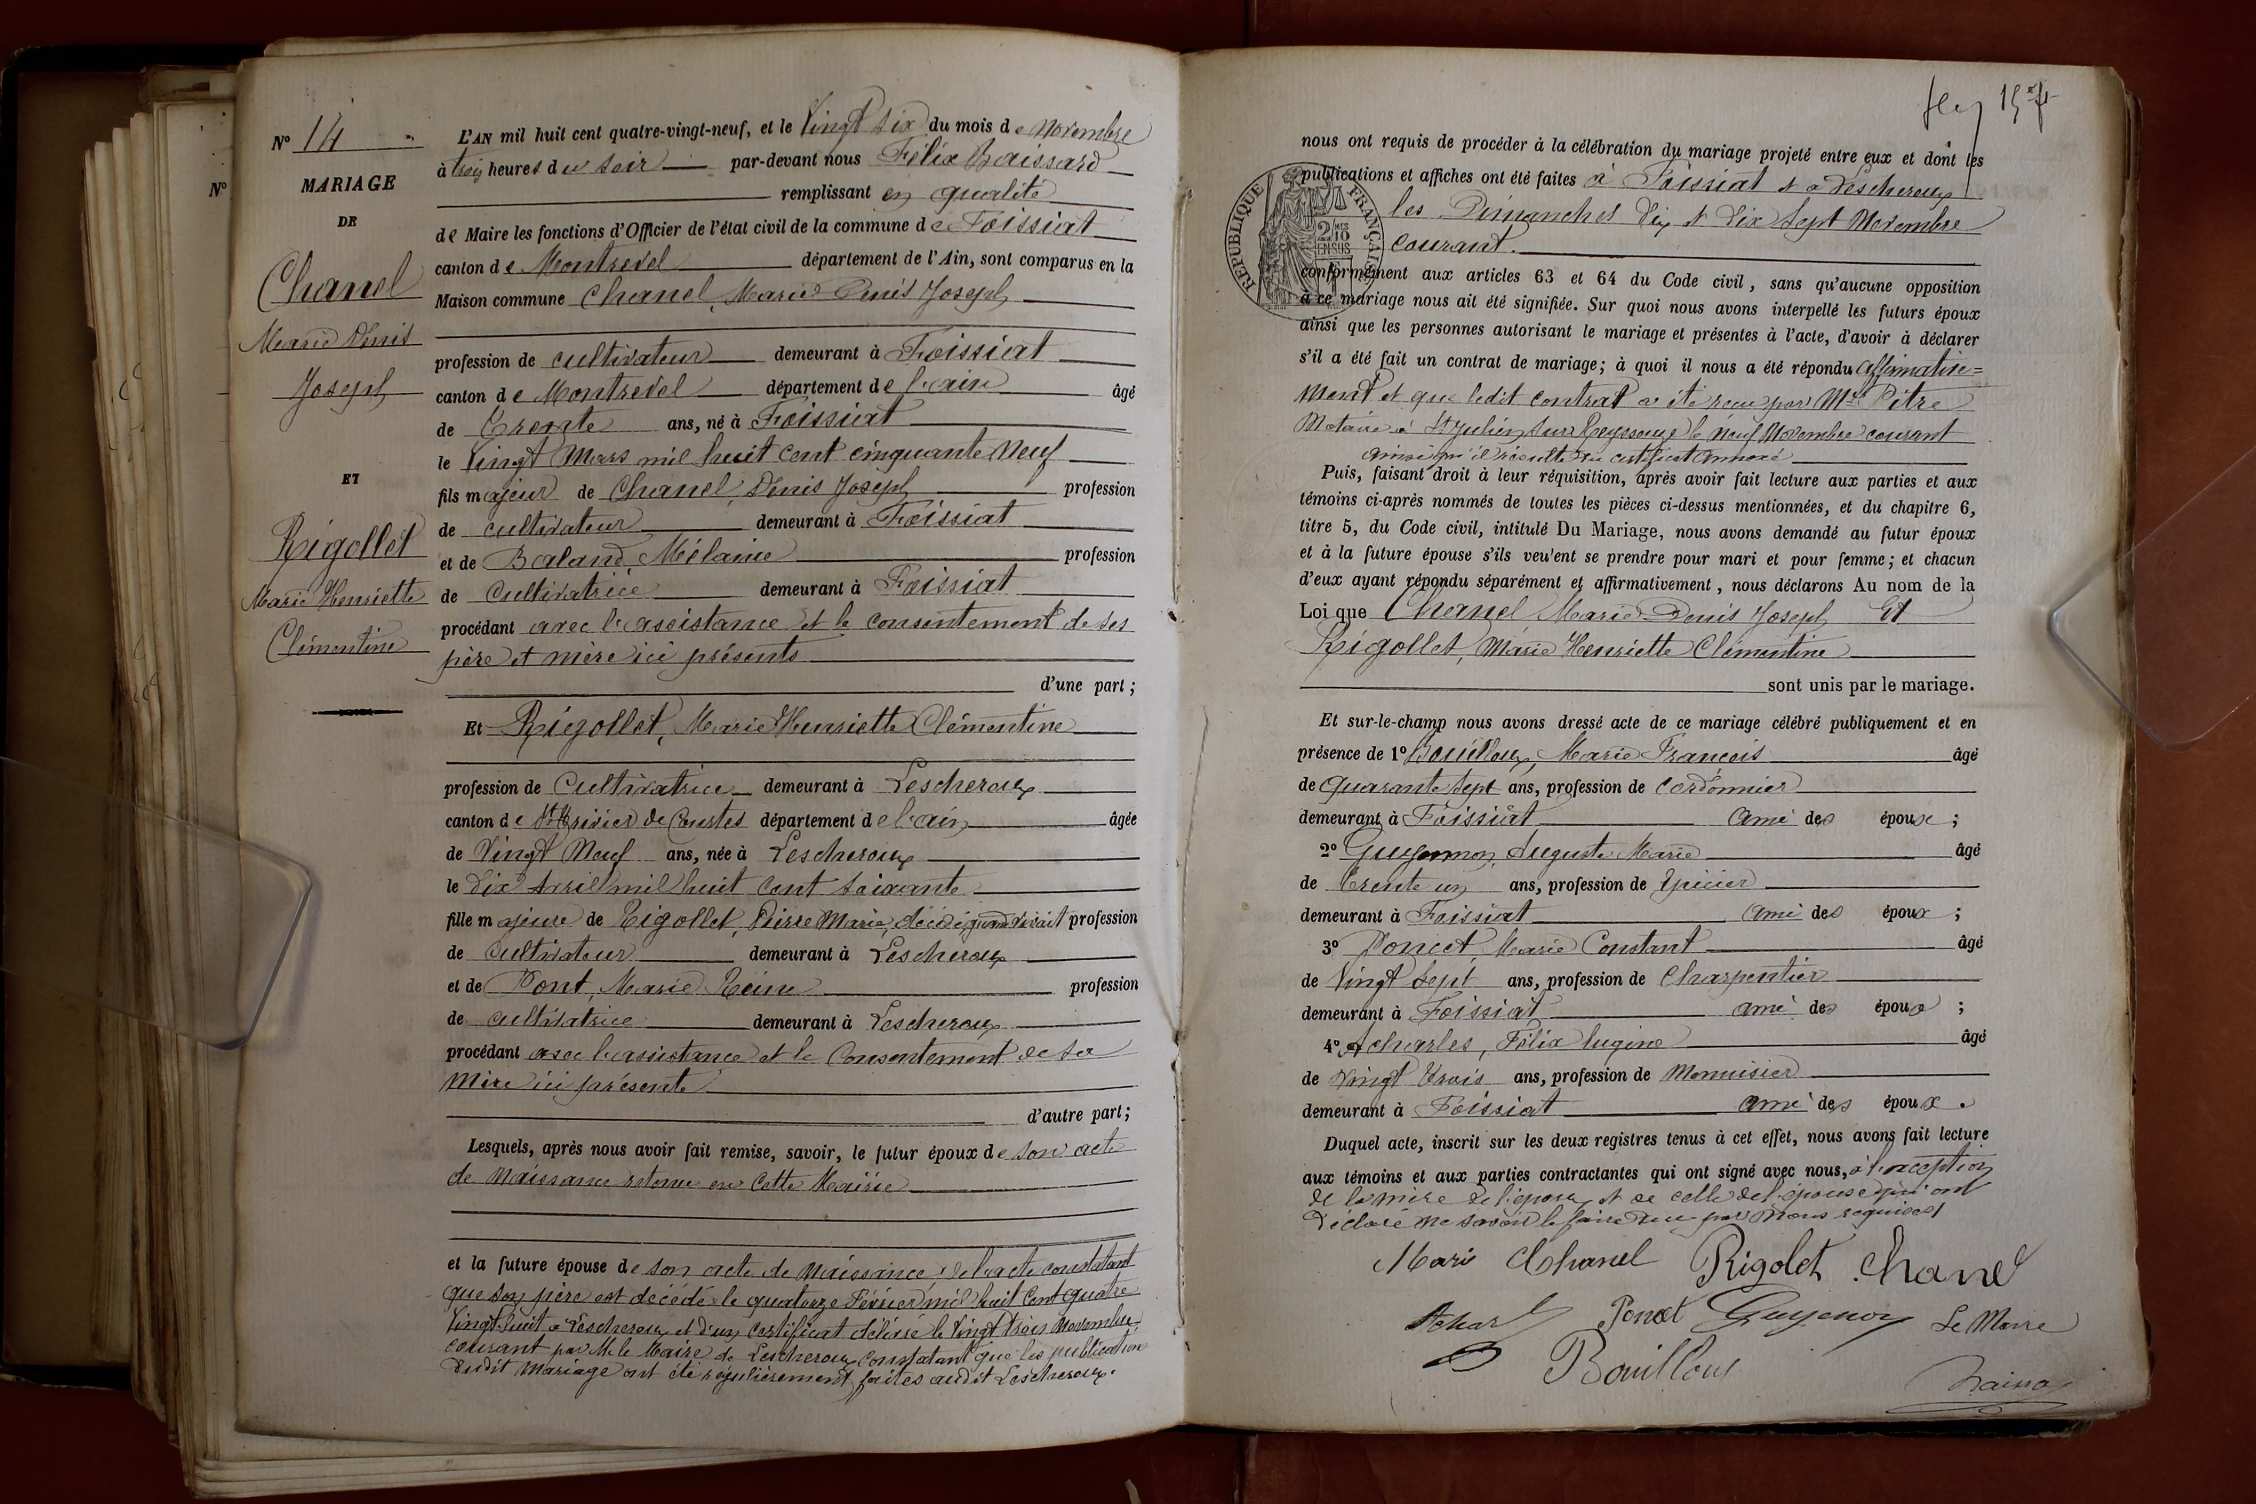 N° 14
MARIAGE
DE
Chanel
Marie Denis
Joseph
ET
Rigollet
Marie Henriette
Clémentine
N°
L'AN mil huit cent quatre-vingt-neuf, et le Vingt six du mois de Novembre
à trois heures du soir par-devant nous Félix
remplissant en qualité
de Maire les fonctions d'Officier de l'état civil de la commune de Foissiat
canton de Montrevel département de l'Ain, sont comparus en la
Maison commune Chanel, Marie Denis Joseph
profession de cultivateur demeurant à Foissiat
canton de Montrevel département de l'ain âgé
de Trente ans, né à Foissiat
le Vingt Mars mil huit cent cinquante Neuf
fils majeur de Chanel, Denis Joseph profession
de cultivateur demeurant à Foissiat
et de Baland Mélanie profession
de Cultivatrice demeurant à Foissiat
procédant avec l'assistance et le consentement de ses
père et mère ici présents
d'une part ;
Et Rigollet, Marie Henriette Clémentine
profession de Cultivatrice demeurant à Lescheroux
canton de St Trivier de Courtes département de l'ain âgée
de Vingt Neuf ans, née à Lescheroux
le dix Avril mil huit cent soixante
fille majeure de Rigollet, Pierre Marie, décédé, quand vivait profession
de cultivateur demeurant à Lescheroux
et de Pont, Marie Reine profession
de cultivatrice demeurant à Lescheroux
procédant avec l'assistance et le Consentement de sa
Mère ici présente
d'autre part ;
Lesquels, après nous avoir fait remise, savoir, le futur époux de son acte
de Naissance retenu en cette Mairie
et la future épouse de son acte de Naissance, de l'acte constatant
que son père est décédé le quatorze Février mil huit Cent quatre
Vingt huit à Lescheroux et d'un certificat délivré le Vingt trois Novembre
courant par M. le Maire de Lescheroux constatant que les publications
dudit Mariage ont été régulièrement faites audit Lescheroux.
157
nous ont requis de procéder à la célébration du mariage projeté entre eux et dont les
publications et affiches ont été faites à Foissiat & à Lescheroux
les Dimanches Dix & Dix Sept Novembre
courant.
RÉPUBLIQUE FRANÇAISE
conformément aux articles 63 et 64 du Code civil, sans qu'aucune opposition
à ce mariage nous ait été signifiée. Sur quoi nous avons interpellé les futurs époux
ainsi que les personnes autorisant le mariage et présentes à l'acte, d'avoir à déclarer
s'il a été fait un contrat de mariage ; à quoi il nous a été répondu affirmative=
ment et que ledit contrat a été reçu par Mtre Pitre
Notaire à St Julien sur Reyssouze le neuf Novembre courant
ainsi qu'il résulte du certificat annexé
Puis, faisant droit à leur réquisition, après avoir fait lecture aux parties et aux
témoins ci-après nommés de toutes les pièces ci-dessus mentionnées, et du chapitre 6,
titre 5, du Code civil, intitulé Du Mariage, nous avons demandé au futur époux
et à la future épouse s'ils veu'ent se prendre pour mari et pour femme ; et chacun
d'eux ayant répondu séparément et affirmativement, nous déclarons Au nom de la
Loi que Chanel Marie Denis Joseph Et
Rigollet, Marie Henriette Clémentine
sont unis par le mariage.
Et sur-le-champ nous avons dressé acte de ce mariage célébré publiquement et en
présence de 1° Bouilloux, Marie François âgé
de Quarante Sept ans, profession de Cordonnier
demeurant à Foissiat ami des époux ;
2° Guyennon, Auguste Marie âgé
de Trente un ans, profession de Epicier
demeurant à Foissiat ami des époux ;
3° Poncet, Marie Constant âgé
de Vingt Sept ans, profession de Charpentier
demeurant à Foissiat ami des époux ;
4° Acharles, Félix Eugène âgé
de Vingt trois ans, profession de Menuisier
demeurant à Foissiat ami des époux.
Duquel acte, inscrit sur les deux registres tenus à cet effet, nous avons fait lecture
aux témoins et aux parties contractantes qui ont signé avec nous, à l'exception
de la mère de l'époux et de celle de l'épouse qui ont
déclaré ne savoir le faire de ce par nous requises
Mari Chanel Rigolet Chanel
Achar Poncet Guyenon Le Maire
Bouilloux